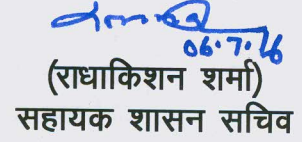 06.7.16
(राधाकिशन शर्मा)
सहायक शासन सचिव